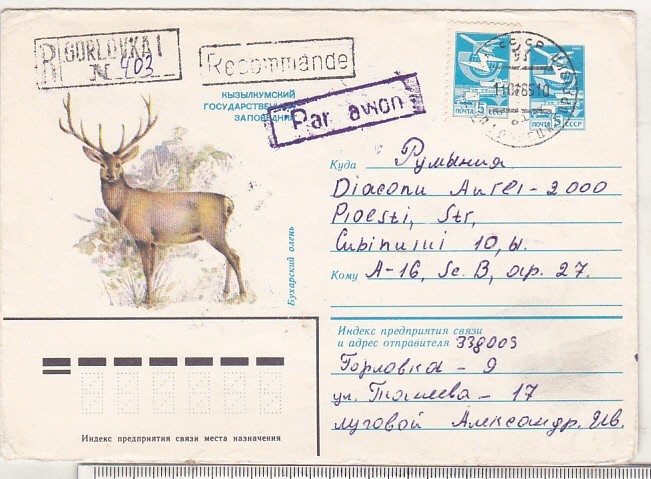 R GORLOVKA 1
N 403
Recommande
Par avion
КЫЗЫЛКУМСКИЙ
ГОСУДАРСТВЕННЫЙ
ЗАПОВЕДНИК
Бухарский олень
ПОЧТА СССР
ПОЧТА СССР
Куда Румыния
Diaconu Aurel-2000
Ploesti, Str,
10, bl.
Кому A-16, Sc. B, ap. 27.
Индекс предприятия связи
и адрес отправителя 338009
Горловка - 9
ул. - 17
луговой Александр.
Индекс предприятия связи места назначения